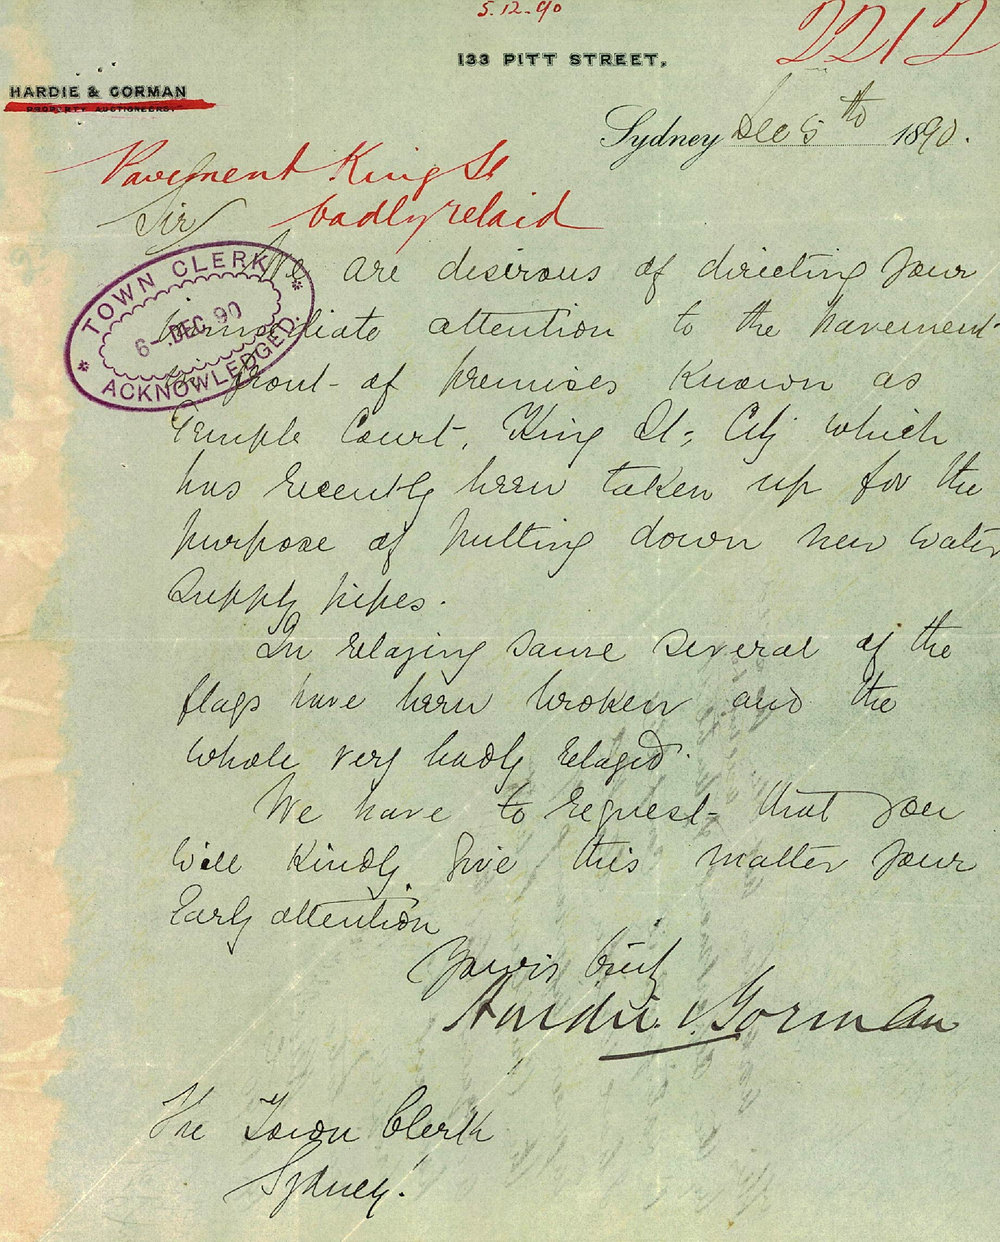 5.12.90
2212
133 PITT STREET,
HARDIE & GORMAN
PROPERTY AUCTIONEERS.
Sydney Dec 5th 1890.
Pavement King St
badly relaid
Sir
TOWN CLERK
6-DEC 90
ACKNOWLEDGED.
We are desirous of directing your
immediate attention to the pavement
in front of premises known as
Temple Court, King St, City which
has recently been taken up for the
purpose of putting down new water
supply pipes.
In relaying same several of the
flags have been broken and the
whole very badly relayed.
We have to request that you
will kindly give this matter your
early attention
Yours truly
Hardie & Gorman
The Town Clerk
Sydney.